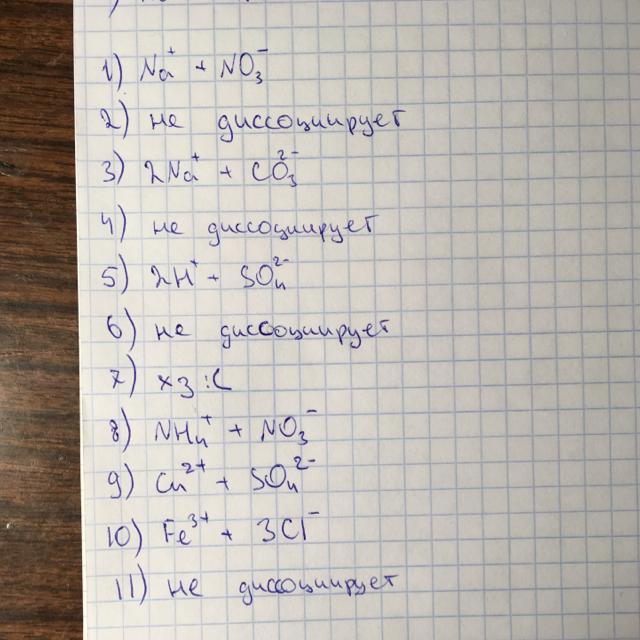 1) Na⁺ + NO₃⁻
2) не диссоциирует
3) 2Na⁺ + CO₃²⁻
4) не диссоциирует
5) 2H⁺ + SO₄²⁻
6) не диссоциирует
7) хз :(
8) NH₄⁺ + NO₃⁻
9) Cu²⁺ + SO₄²⁻
10) Fe³⁺ + 3Cl⁻
11) не диссоциирует